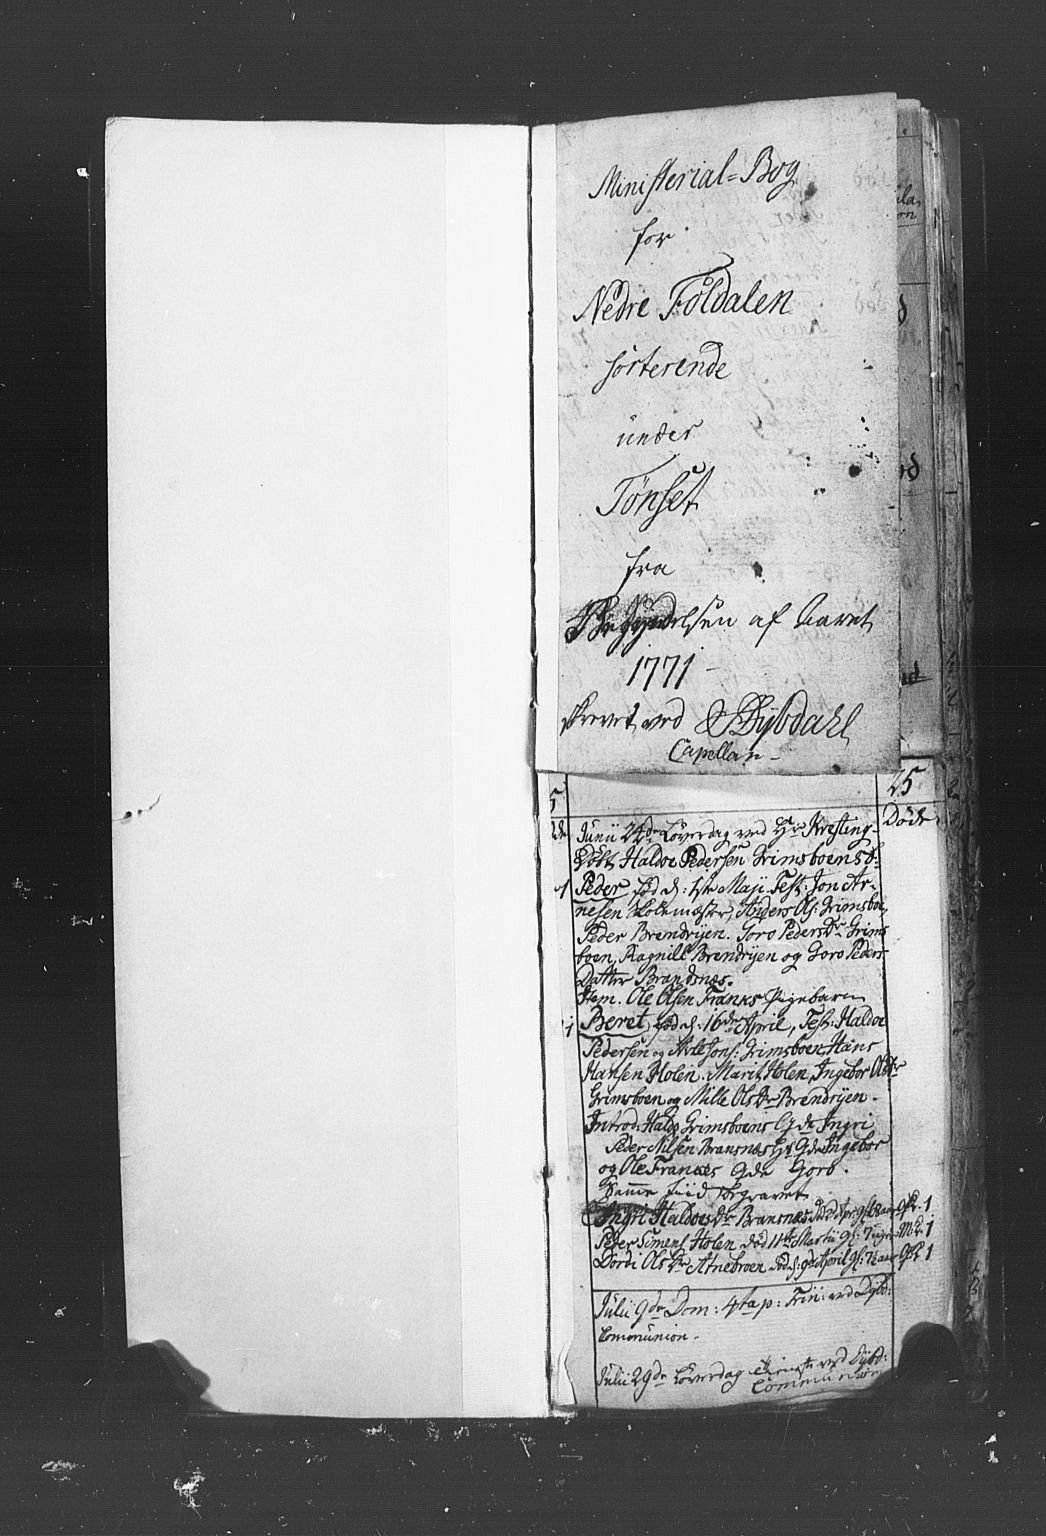 Ministerial=Bog
for
Nedre Foldalen
sorterende
under
Tönset
fra
Begyndelsen af Aaret
1771
skrevet ved Dybdahl
Capellan
25
Døde
Junii 24de Löverdag ved Hr Kresting
Döbt Haldoe Pedersen Grimsboens S:
1 Peder föd d: 1ste Maji Test: Jon Ar-
nesen Skolemester, Anders Ols: Grimsboe,
Peder Brendryen. Goro Peders Dr Grims
boen, Ragnill Brendryen og Goro Peders
Datter Brandsnæs.
Item. Ole Olsen Franks Pigebarn
1 Beret föd d: 16de April, Test: Haldoe
Pedersen og Jons: Grimsboen, Hans
Hansen Holen. Marit Holen, Ingebor Ols Dr
Grimsboen og Mille Ols Dr Brendryen.
Introd: Haldo Grimsboens Qde Ingri
Peder Nilsen Bransnæs Qde Ingebor
og Ole Franks Qde Goro.
Samme tiid begravet
Ingri Haldoes Dr Bransnæs 1
Peder Simens Holen död 11te Martii gl: 7 uger M:K: 1
Dordi Ols Dr Atnebroen död d: 9de April gl: 72 aar QK 1
Julii 9de Dom: 4ta p: Trin: ved Dybd:
Communion.
Julii 29de Löverdag tieneste ved Dybd:
Communion